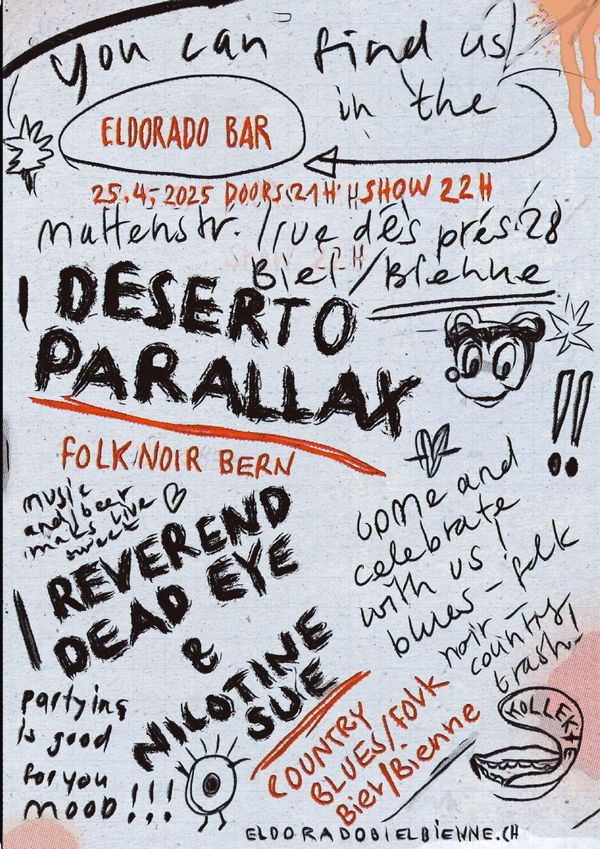 you can find us
in the
ELDORADO BAR
25.4.2025 DOORS 21H SHOW 22H
Mattenstr. / rue des prés 28
SHOW 22H
Biel/Bienne
DESERTO
PARALLAX
FOLK NOIR BERN
music
and beer
makes live
sweet
REVEREND
DEAD EYE
&
NILOTINE
SUE
come and
celebrate
with us!
blues - folk
noir -
country
trash!
partying
is good
for you
MOOD!!!
COUNTRY
BLUES/FOLK
Biel/Bienne
KOLLEKTE
ELDORADOBIELBIENNE.CH